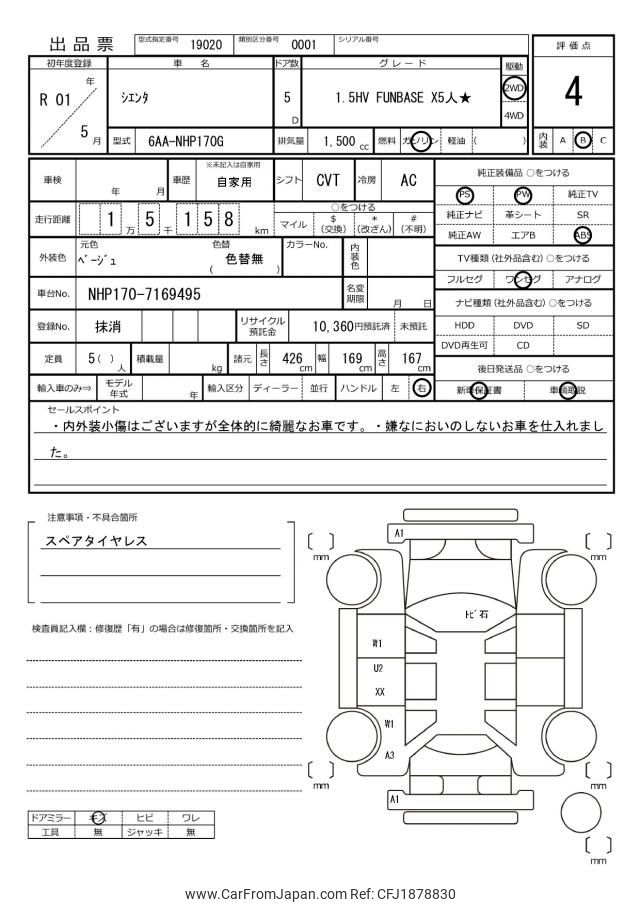 出品票 型式指定番号 19020 類別区分番号 0001 シリアル番号
評価点
4
初年度登録 車名 ドア数 グレード 駆動
R 01 年 / 5 月
シエンタ
5 D
1.5HV FUNBASE X5人★
2WD
4WD
型式 6AA-NHP170G 排気量 1,500 cc 燃料 ガソリン 軽油 ( ) 内装 A B C
車検 年 月 車歴 ※未記入は自家用 自家用 シフト CVT 冷房 AC
走行距離 1 万 5 千 1 5 8 km
○をつける
マイル $ (交換) * (改ざん) # (不明)
外装色 元色 ベージュ 色替 ( 色替無 ) カラーNo. 内装色
車台No. NHP170-7169495 名変期限 月 日
登録No. 抹消 リサイクル預託金 10,360円預託済 未預託
定員 5( ) 人 積載量 kg 諸元 長さ 426 cm 幅 169 cm 高さ 167 cm
輸入車のみ⇒ モデル年式 年 輸入区分 ディーラー 並行 ハンドル 左 右
純正装備品 ○をつける
PS PW 純正TV
純正ナビ 革シート SR
純正AW エアB ABS
TV種類 (社外品含む) ○をつける
フルセグ ワンセグ アナログ
ナビ種類 (社外品含む) ○をつける
HDD DVD SD
DVD再生可 CD
後日発送品 ○をつける
新車保証書 車輌取説
セールスポイント
・内外装小傷はございますが全体的に綺麗なお車です。・嫌なにおいのしないお車を仕入れまし
た。
注意事項・不具合箇所
スペアタイヤレス
検査員記入欄：修復歴「有」の場合は修復箇所・交換箇所を記入
ドアミラー キズ ヒビ ワレ
工具 無 ジャッキ 無
A1
[ ] mm
[ ] mm
トビ石
W1
U2
XX
W1
A3
[ ] mm
[ ] mm
A1
[ ] mm
www.CarFromJapan.com Ref: CFJ1878830